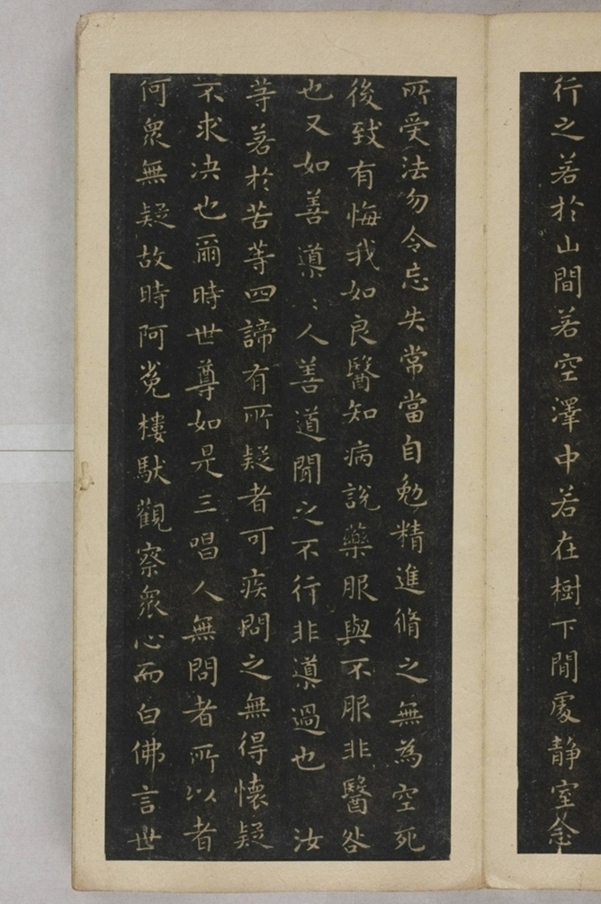 行之若於山間若空澤中若在樹下閒處静室念
所受法勿令忘失常當自勉精進脩之無為空死
後致有悔我如良醫知病說藥服與不服非醫咎
也又如善導〻人善道聞之不行非導過也 汝
等若於苦等四諦有所疑者可疾問之無得懷疑
不求决也爾時世尊如是三唱人無問者所以者
何衆無疑故時阿㝹樓馱觀察衆心而白佛言世